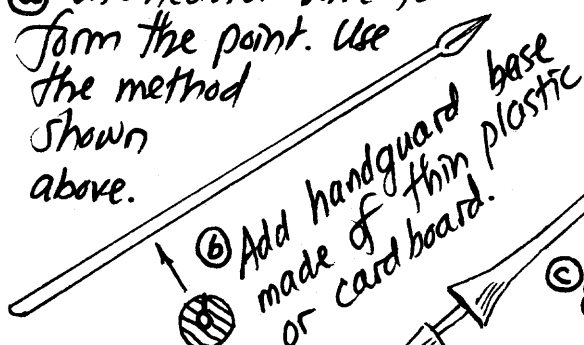 ⓐ
form the point. Use
the method
shown
above.
ⓑ Add handguard base
made of thin plastic
or cardboard.
ⓒ